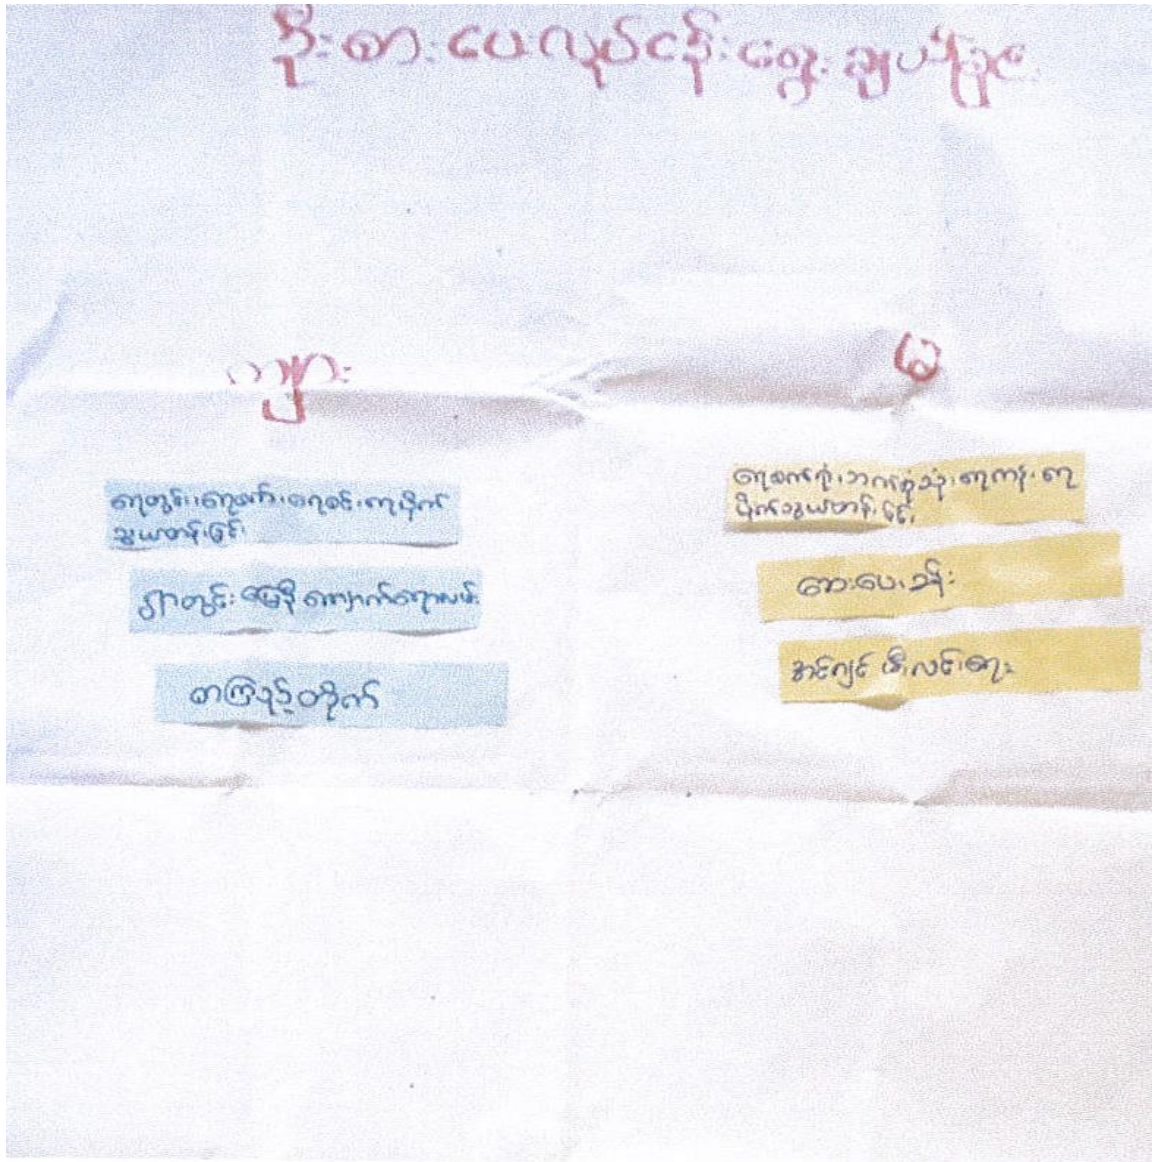 ဦးစားပေးလုပ်ငန်းရွေးချယ်ခြင်း
ကျား
မ
ရေတွင်း၊ ရေစက်၊ ရေစင်၊ ရေပိုက်
သွယ်တန်းခြင်း
ရွာတွင်း မြေနီ ကျောက်ချောလမ်း
စာကြည့်တိုက်
ရေပိုက်သွယ်တန်းခြင်း
ဆေးပေးခန်း
အင်ဂျင် မီးလင်းရေး